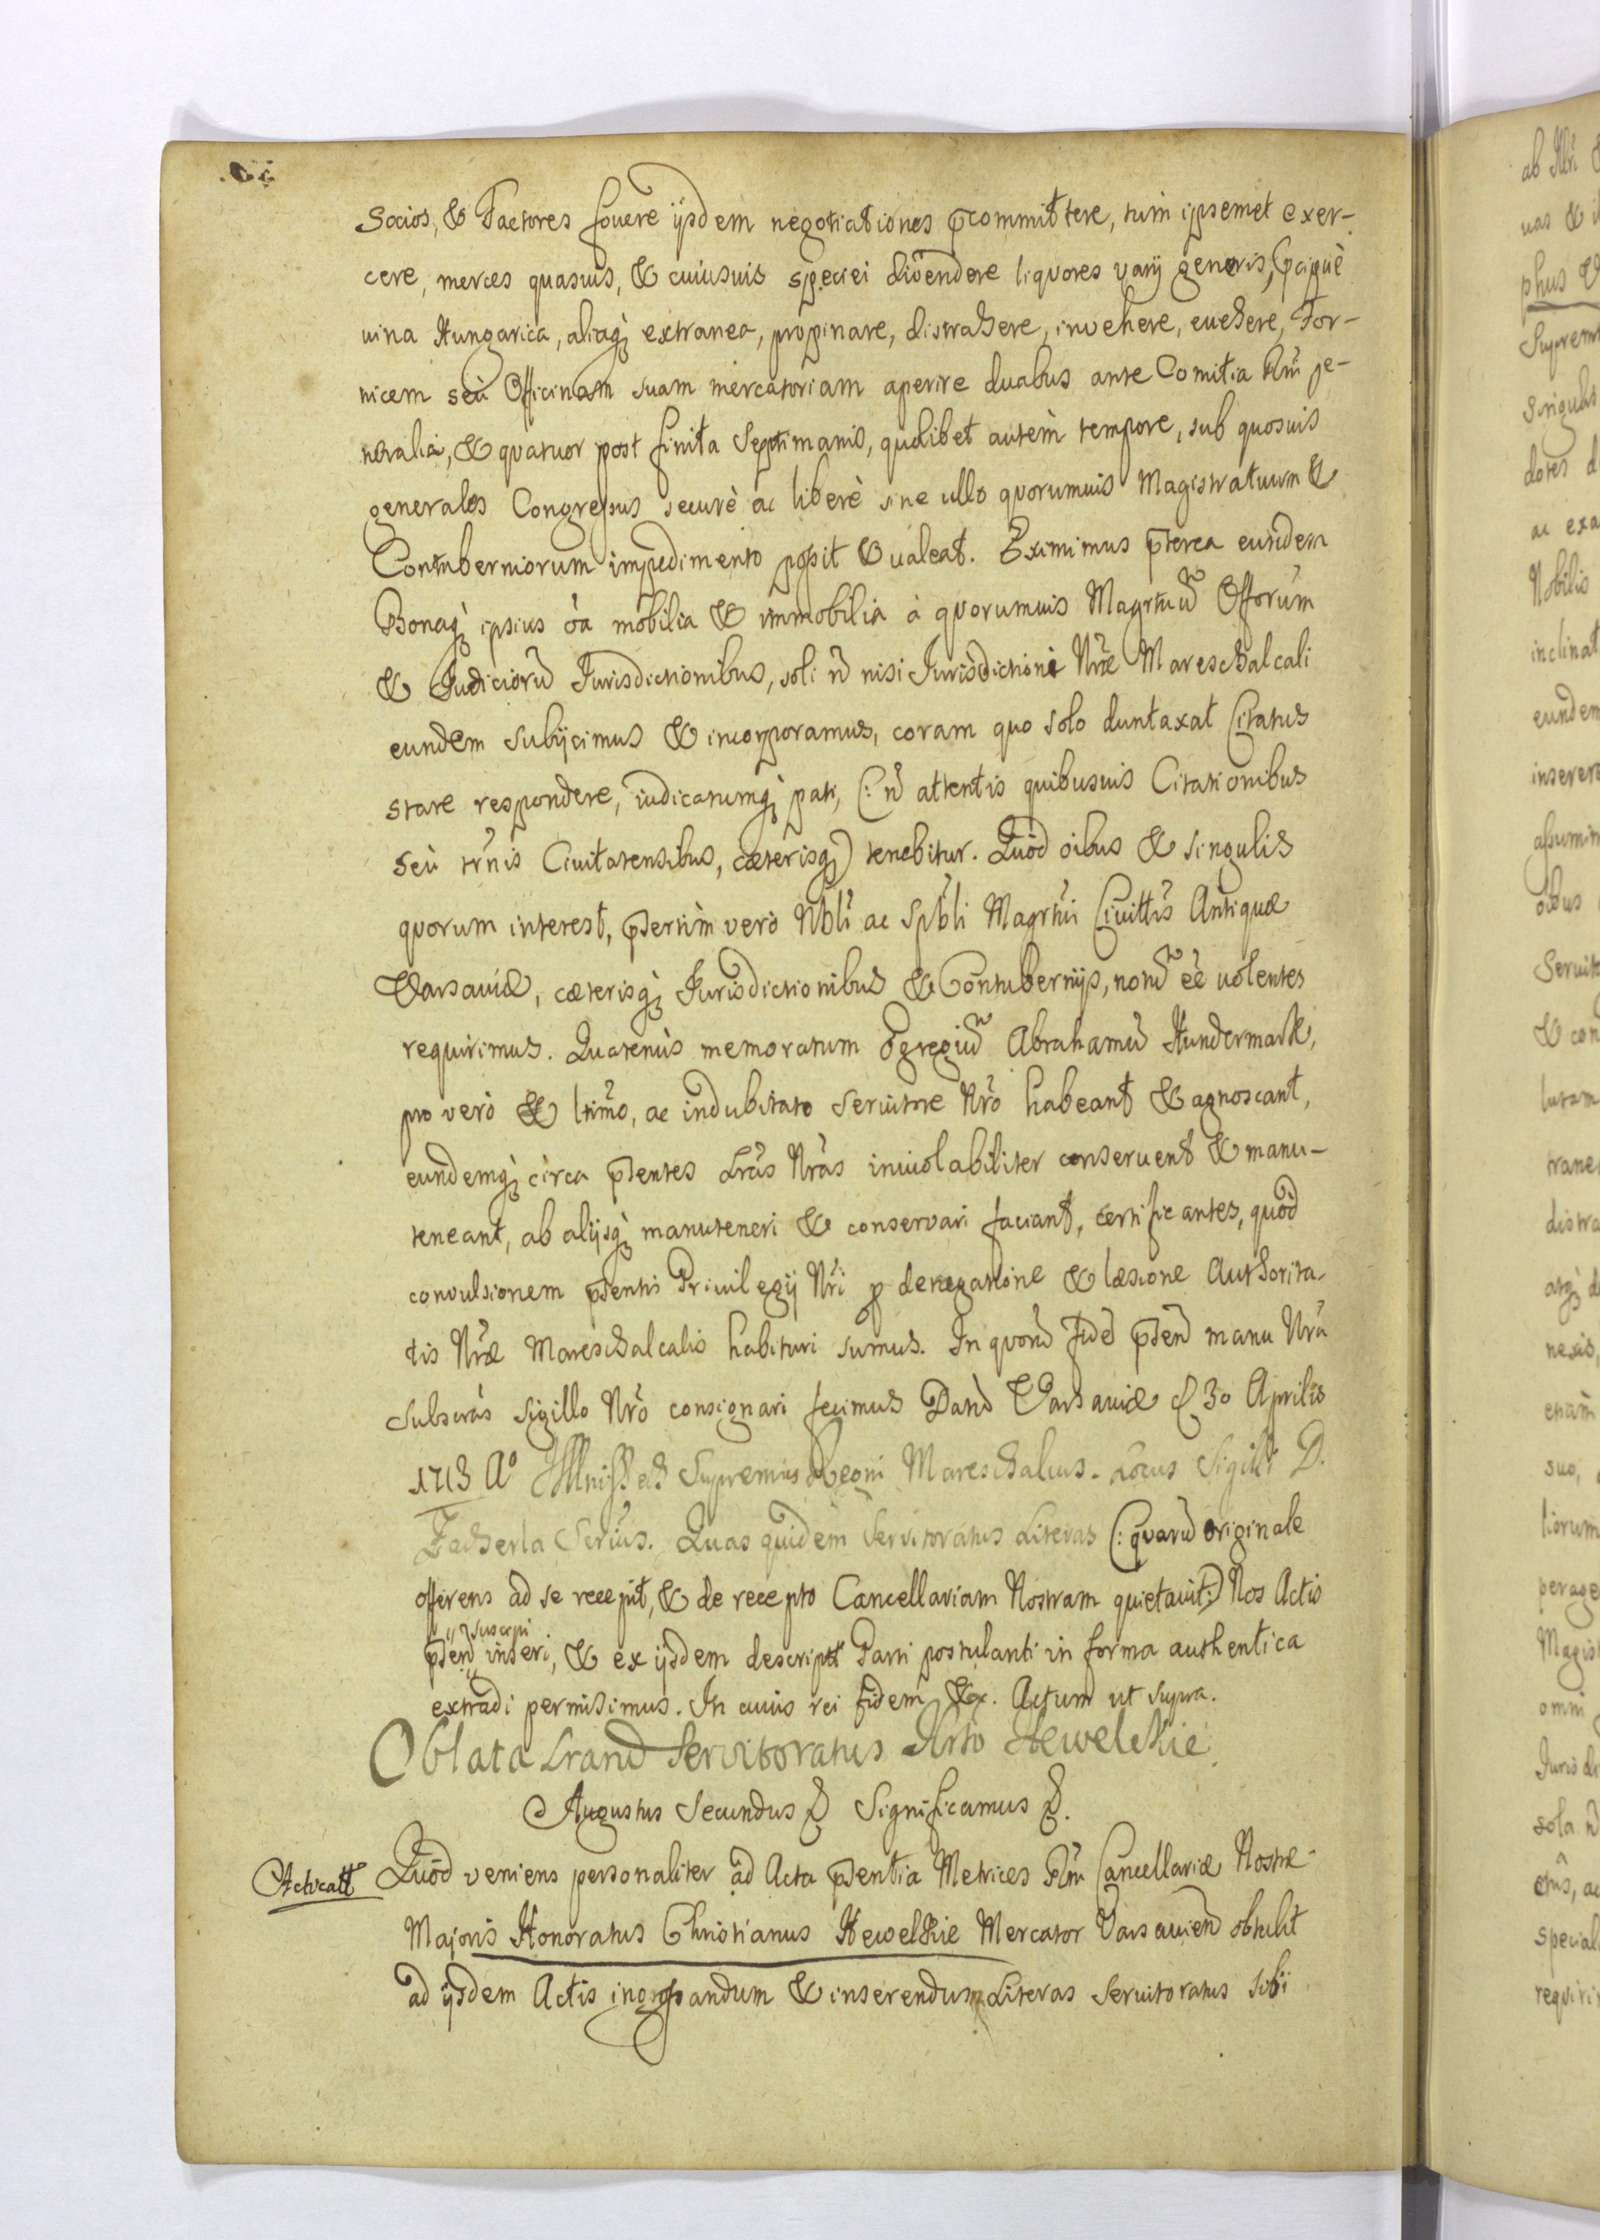 Socios, & Factores fouere ijsdem negotiationes committere, tum ipsemet exer-
cere, merces quasuis, & cuiusuis speciei divendere liquores varij generis, pcipuè
uina Hungarica, aliaq; extranea, propinare, distrahere, invehere, euehere, For-
nicem seù Officinam suam mercatoriam aperire duabus ante Comitia Rñi ge-
neralia, & quatuor post finita Septimanis, quolibet autèm tempore, sub quosuis
generales Congressus securè ac liberè sine ullo quorumuis Magistratuum &
Contuberniorum impedimento possit & ualeat. Eximimus pterea eundem
Bonaq; ipsius oã mobilia & immobilia à quorumuis Magrtuũ Offorum
& Iudiciorũ Iurisdictionibus, soli ñ nisi Iurisdictioni Nræ Mareschalcali
eundem subijcimus & incorporamus, coram quo solo duntaxat Citatus
stare respondere, iudicatumq; pati, (: ñ attentis quibusuis Citationibus
seù trñis Ciuitatensibus, cæterisq;) tenebitur. Quod oibus & singulis
quorum interest, psertim verò Nobli ac Spbli Magrtui Ciuittis Antiquæ
Varsauiæ, cæterisq; Iurisdictionibus & Contubernijs, notũ eê uolentes
requirimus. Quatenùs memoratum Egregiũ Abrahamũ Hundermark,
pro verò & ltimo, ac indubitato Seruitore Nrõ habeant & agnoscant,
eundemq; circa psentes Lrãs Nrãs inuiolabiliter conseruent & manu-
teneant, ab alijsq; manuteneri & conservari faciant, certificantes, quòd
convulsionem psentis Priuilegij Nri p derogatione & læsione Authorita-
tis Nræ Mareschalcalis habituri sumus. In quorũ fidẽ psend manu Nrã
subscrãs Sigillo Nrõ consignari fecimus Datũ Varsauiæ d 30 Aprilis
1713 Aº Supremus Regni Mareschalcus. Locus Sigilli D.
Quas quidèm Servitoratus Literas (: quarũ originale
offerens ad se recepit, & de recepto Cancellariam Nostram quietauit:) Nos Actis
suscipi
psend inseri, & ex ijsdem descriptt Parti postulanti in forma authentica
extradi permisimus. In cuius rei fidem &c. Actum ut supra.
Oblata Lrarũ Servitoratus Hewelkie.
Augustus Secundus & Significamus &.
Quòd veniens personaliter ad Acta psentia Metrices Rñi Cancellariæ Nostræ
Majoris Honoratus Christianus Hewelkie Mercator Varsauiend obtulit
ad ijsdem Actis ingrossandum & inserendum Literas Seruitoratus sibi